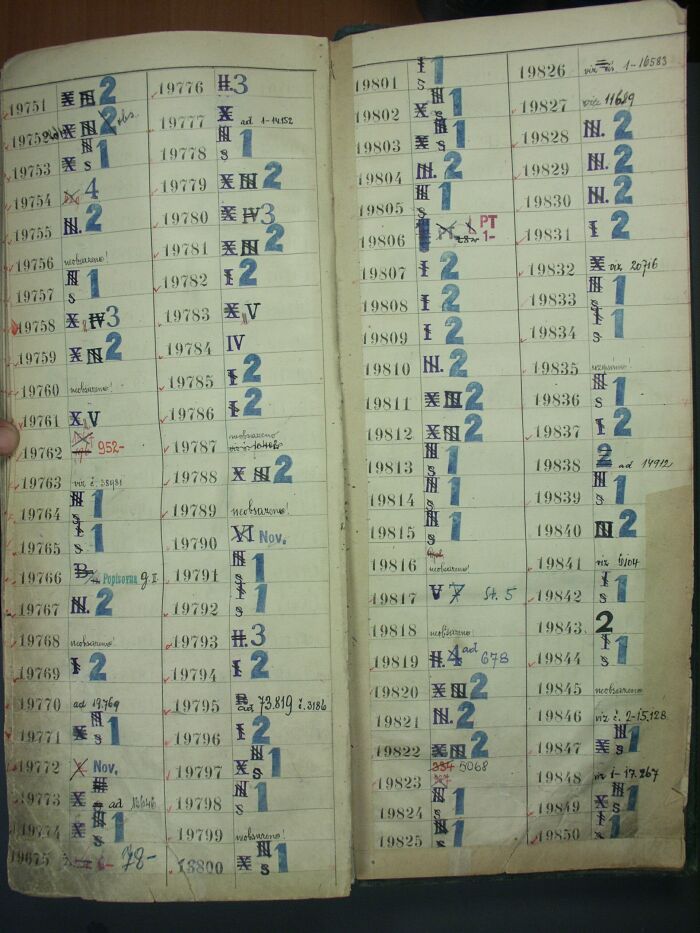 19751 X III 2
19752 X III 2 obs.
19753 X III s 1
19754 IV 4
19755 III. 2
19756 neobsazeno!
19757 III s 1
19758 X IV 3
19759 X III 2
19760 neobsazeno!
19761 X V
19762 952-
19763 viz č. 28981
19764 III s 1
19765 I s 1
19766 B Popisovna g. I
19767 III. 2
19768 neobsazeno!
19769 I 2
19770 ad 19769
19771 X III s 1
19772 X Nov.
19773 X III ad
19774 X III s 1
19675 78-
19776 II. 3
19777 X ad 1-14152
19778 III s 1
19779 X III 2
19780 X IV 3
19781 X III 2
19782 I 2
19783 X V
19784 IV
19785 I 2
19786 I 2
19787 neobsazeno
19788 X III 2
19789 neobsazeno!
19790 VI Nov.
19791 III s 1
19792 I s 1
19793 II. 3
19794 I 2
19795 B ad 73.819 č. 3186
19796 I 2
19797 X III s 1
19798 III s 1
19799 neobsazeno!
19800 X III s 1
19801 I s 1
19802 X III s 1
19803 X III s 1
19804 III. 2
19805 III s 1
19806 PT 1-
19807 I 2
19808 I 2
19809 I 2
19810 III. 2
19811 X III 2
19812 X III 2
19813 III s 1
19814 III s 1
19815 III s 1
19816 neobsazeno!
19817 V 7 St. 5
19818 neobsazeno!
19819 II. 4 ad 678
19820 X III 2
19821 III. 2
19822 X III 2
19823 334 5068
19824 III s 1
19825 III s 1
19826 viz 1-16583
19827 viz 11689
19828 III. 2
19829 III. 2
19830 III. 2
19831 I 2
19832 X viz 20716
19833 III s 1
19834 I s 1
19835
19836 III s 1
19837 I 2
19838 2 ad 14912
19839 III s 1
19840 III 2
19841 viz 6104
19842 I s 1
19843 2
19844 I s 1
19845 neobsazeno
19846 viz č. 2-15.128
19847 X III s 1
19848 viz 1-17.267
19849 X III s 1
19850 I s 1